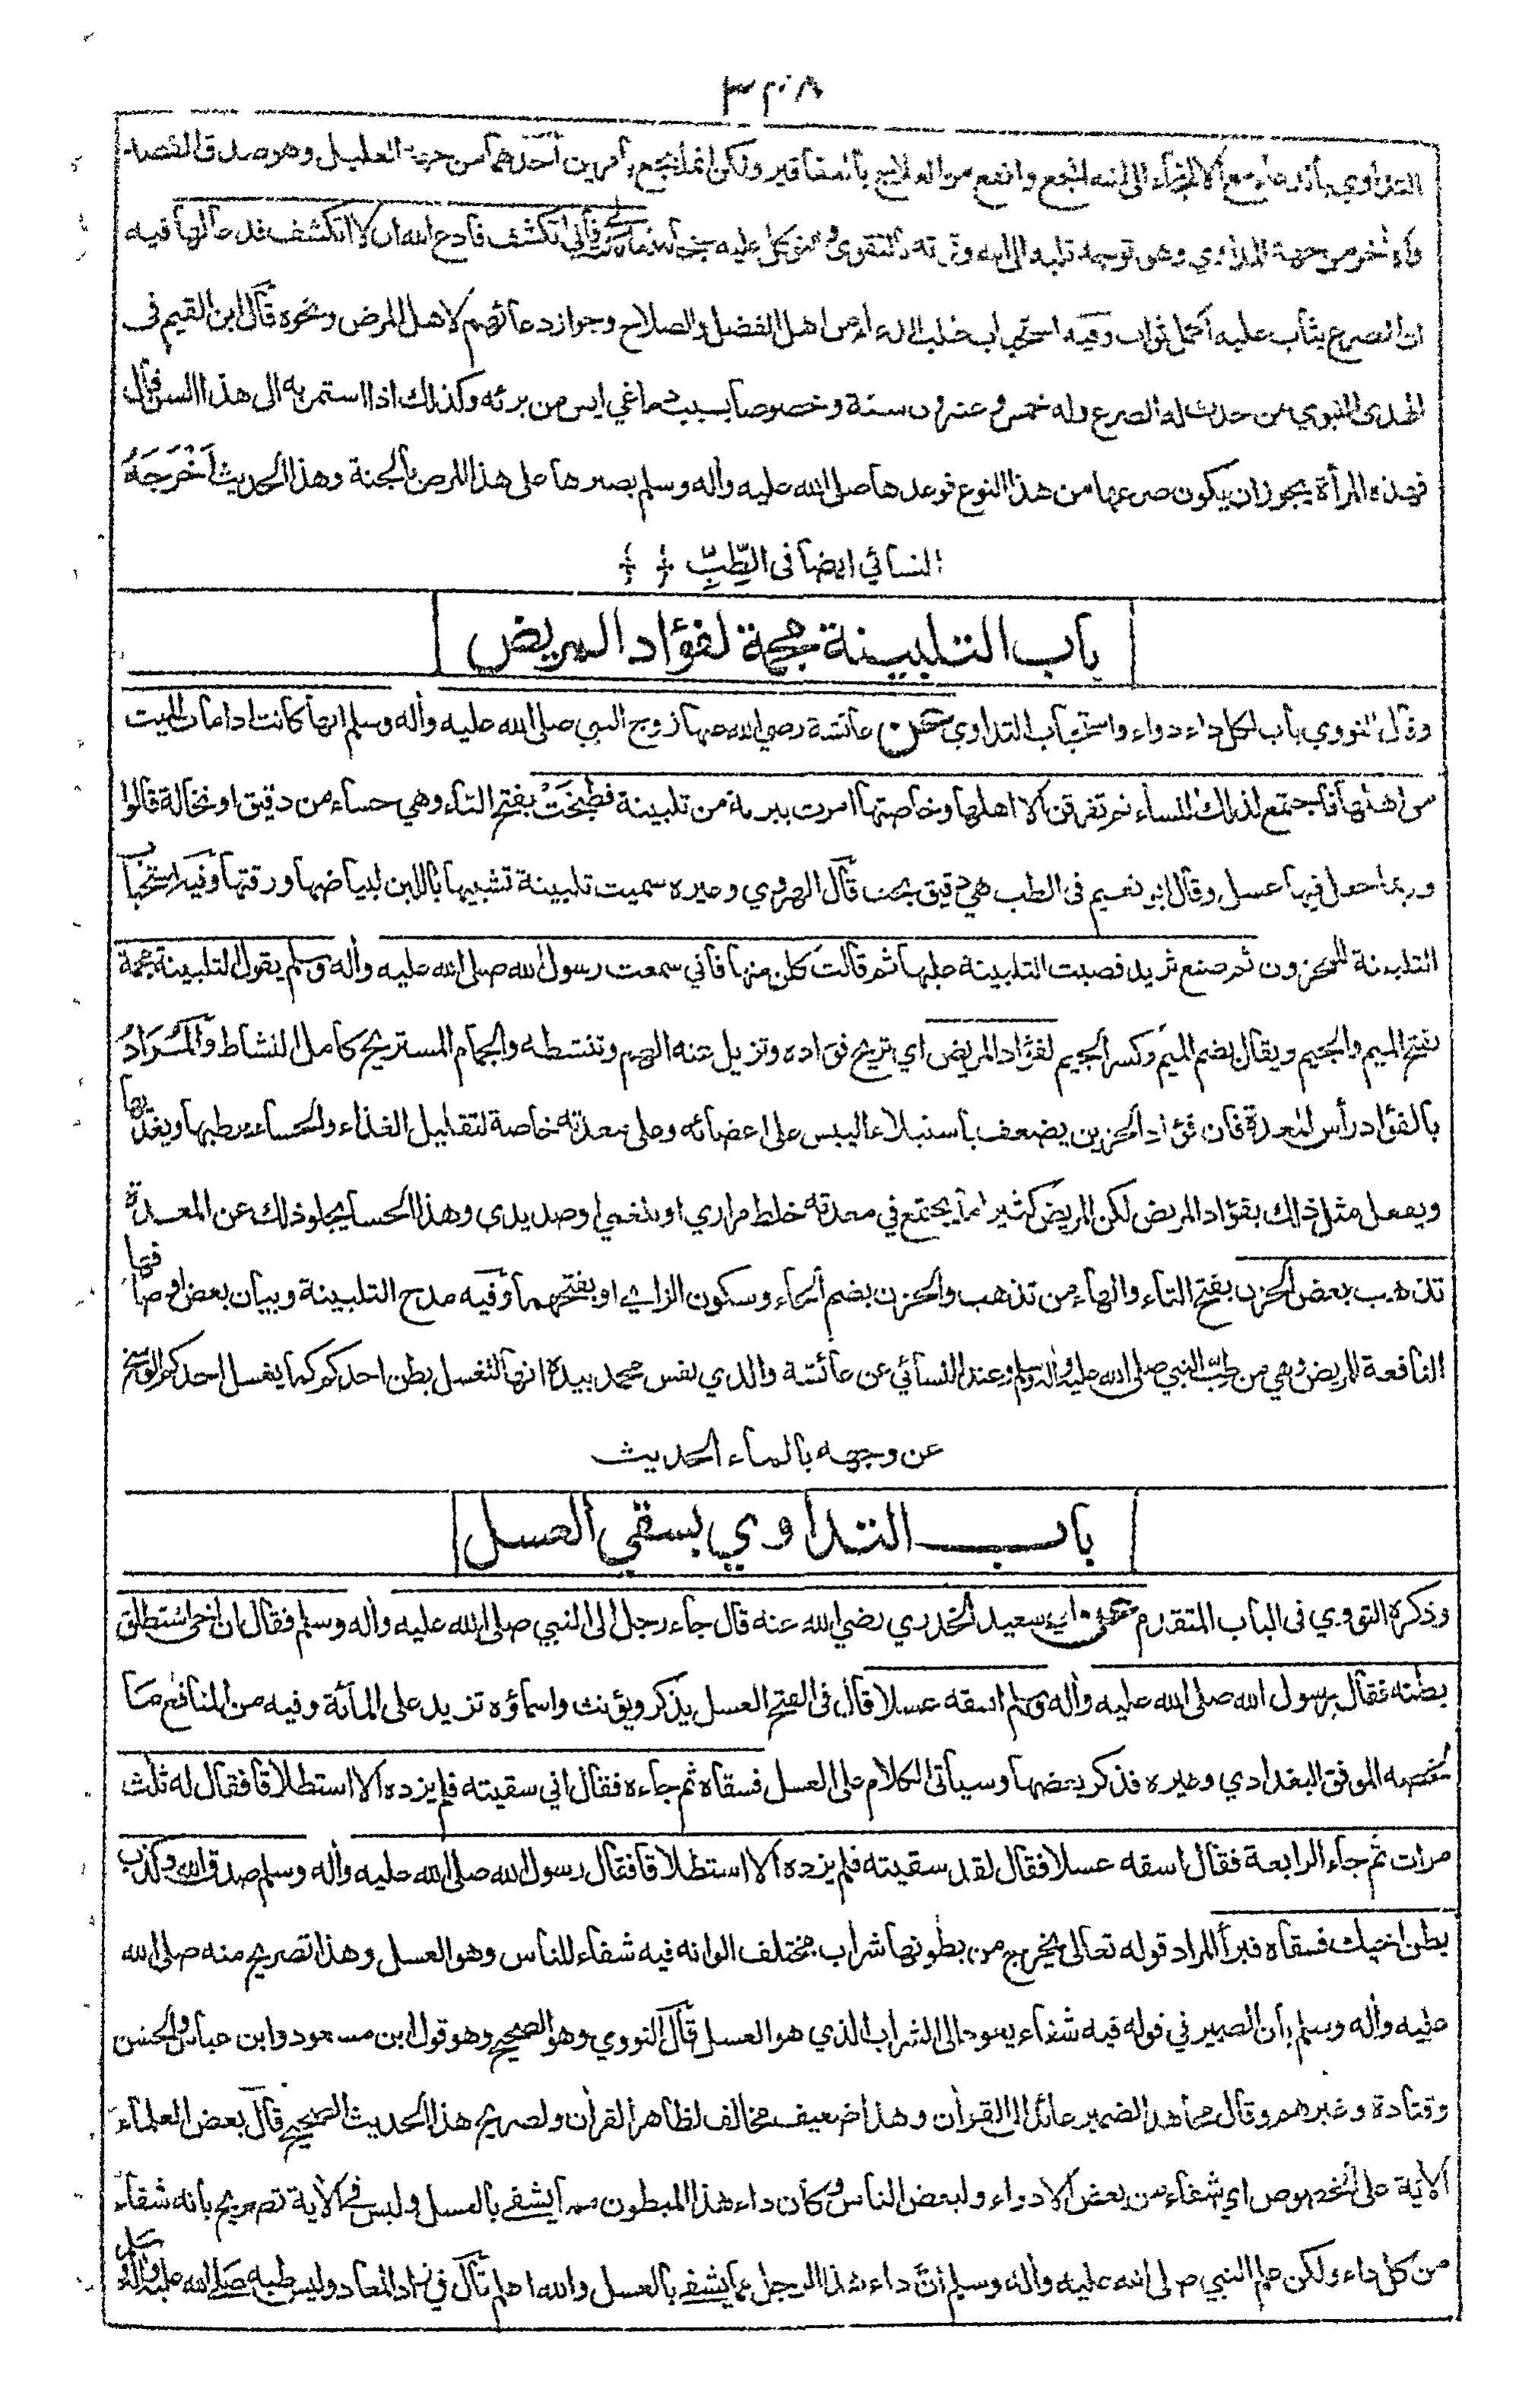 ٣٠٨
التداوي بالدعاء مع الالتجاء الى الله انجع وانفع من العلاج بالعقاقير ولكن انما ينجع بامرين احدهما من جهة العليل وهو صدق القصد
والاخر من جهة المداوي وهو توجه قلبه الى الله وقوته بالتقوى والتوكل عليه فاني اتكشف فادع الله ان لا اتكشف فدعا لها فيه
ان الصرع يثاب عليه اكمل ثواب وفيه استحباب طلب الدعاء من اهل الفضل والصلاح وجواز دعائهم لاهل المرض ونحوه قال ابن القيم فى
الهدى النبوي من حدث له الصرع وله خمس وعشرون سنة وخصوصا بسبب دماغي ايس من برئه وكذلك اذا استمر به الى هذا السن قال
فهذه المرأة يجوز ان يكون صرعها من هذا النوع فوعدها صلى الله عليه وأله وسلم بصبرها على هذا المرض بالجنة وهذا الحديث اَخْرَجَهُ
النسائي ايضا فى الطِّبِّ
باب التلبينة مجمة لفؤاد المريض
وقال النووي باب لكل داء دواء واستحباب التداوي عن عائشة رضي الله عنها زوج النبي صلى الله عليه وأله وسلم انها كانت اذا مات الميت
من اهلها فاجتمع لذلك النساء ثم تفرقن الا اهلها وخاصتها امرت ببرمة من تلبينة فطبخت بفتح التاء وهي حساء من دقيق او نخالة قالوا
وربما جعل فيها عسل وقال ابو نعيم فى الطب هي دقيق بحت قال الهروي وغيره سميت تلبينة تشبيها باللبن لبياضها ورقتها وفيه استحباب
التلبينة للمحزون ثم صنع ثريد فصبت التلبينة عليها ثم قالت كلن منها فاني سمعت رسول الله صلى الله عليه وأله وسلم يقول التلبينة مجمة
بفتح الميم والجيم ويقال بضم الميم وكسر الجيم لفؤاد المريض اي تريح فؤاده وتزيل عنه الهم وتنشطه والجمام المستريح كامل النشاط والمُرَادُ
بالفؤاد رأس المعدة فان فؤاد الحزين يضعف باستيلاء اليبس على اعضائه وعلى معدته خاصة لتقليل الغذاء والحساء يرطبها ويغذيها
ويفعل مثل ذلك بفؤاد المريض لكن المريض كثيرا ما يجتمع في معدته خلط مراري او بلغمي او صديدى وهذا الحسا يجلو ذلك عن المعدة
تذهب ببعض الحزن بفتح التاء والهاء من تذهب والحزن بضم الحاء وسكون الزاي او بفتحهما وفيه مدح التلبينة وبيان بعض اوصافها
النافعة للمريض وهي من طب النبي صلى الله عليه وأله وسلم وعند النسائي عن عائشة والذي نفس محمد بيده انها لتغسل بطن احدكم كما يغسل احدكم الوسخ
عن وجهه بالماء الحديث
باب التداوي بسقي العسل
وذكره النووي فى الباب المتقدم عن ابي سعيد الخدري رضي الله عنه قال جاء رجل الى النبي صلى الله عليه وأله وسلم فقال ان اخى استطلق
بطنه فقال رسول الله صلى الله عليه وأله وسلم اسقه عسلا قال فى الفتح العسل يذكر ويؤنث واسماؤه تزيد على المائة وفيه من المنافع ما
لخصه الموفق البغدادي وغيره فذكر بعضها وسيأتى الكلام على العسل فسقاه ثم جاءه فقال اني سقيته فلم يزده الا استطلاقا فقال له ثلث
مرات ثم جاء الرابعة فقال اسقه عسلا فقال لقد سقيته فلم يزده الا استطلاقا فقال رسول الله صلى الله عليه وأله وسلم صدق الله وكذب
بطن اخيك فسقاه فبرأ المراد قوله تعالى يخرج من بطونها شراب مختلف الوانه فيه شفاء للناس وهو العسل وهذا تصريح منه صلى الله
عليه وأله وسلم بان الضمير في قوله فيه شفاء يعود الى الشراب الذي هو العسل قال النووي وهو الصحيح وهو قول ابن مسعود وابن عباس والحسن
وقتادة وغيرهم وقال مجاهد الضمير عائد الى القرأن وهذا ضعيف مخالف لظاهر القرأن ولصريح هذا الحديث الصحيح قال بعض العلماء
الأية على الخصوص اي شفاء من بعض الادواء ولبعض الناس وكان داء هذا المبطون مما يشفى بالعسل وليس فى الأية تصريح بانه شفاء
من كل داء ولكن علم النبي صلى الله عليه وأله وسلم انّ داء هذا الرجل مما يشفى بالعسل والله اعلم قال في زاد المعاد وليس طبه صلى الله عليه وأله وسلم